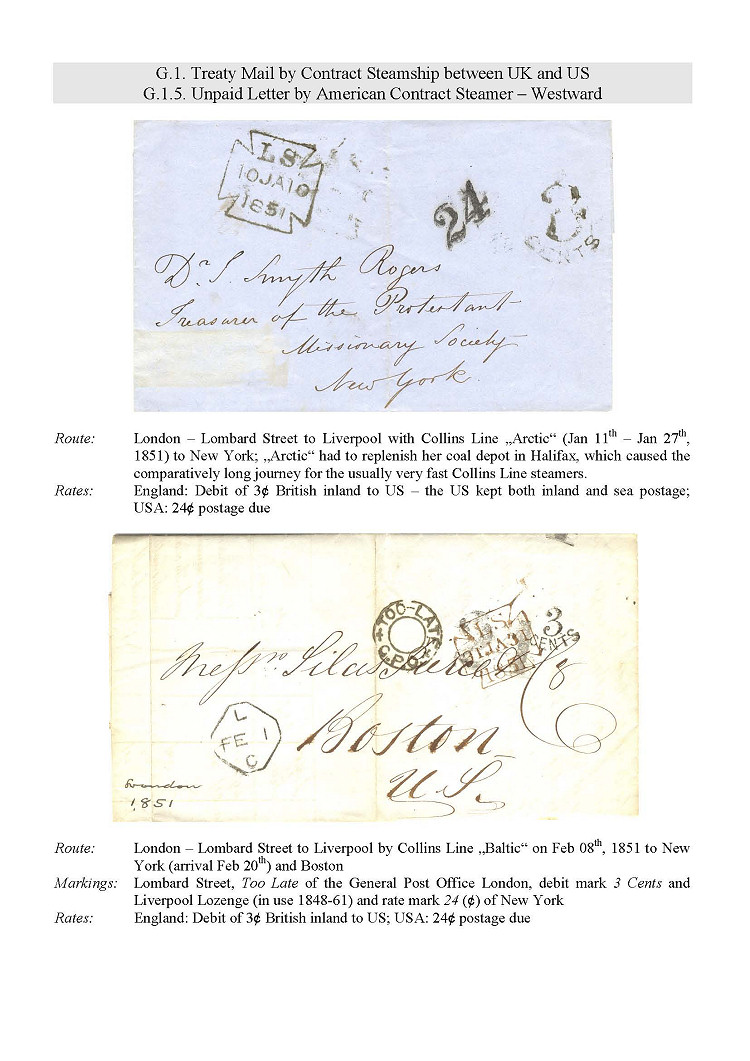 G.1. Treaty Mail by Contract Steamship between UK and US
G.1.5. Unpaid Letter by American Contract Steamer – Westward
LS
10JA10
1851
24
3
CENTS
Dr. J. Smyth Rogers
Treasurer of the Protestant
Missionary Society
New York.
Route: London – Lombard Street to Liverpool with Collins Line „Arctic“ (Jan 11th – Jan 27th,
1851) to New York; „Arctic“ had to replenish her coal depot in Halifax, which caused the
comparatively long journey for the usually very fast Collins Line steamers.
Rates: England: Debit of 3¢ British inland to US – the US kept both inland and sea postage;
USA: 24¢ postage due
TOO-LATE
G.P.O
LS
31JA31
1851
3
CENTS
Messrs. Silas Pierce & Co
Boston
U.S.
L
FE 1
C
London
1851
Route: London – Lombard Street to Liverpool by Collins Line „Baltic“ on Feb 08th, 1851 to New
York (arrival Feb 20th) and Boston
Markings: Lombard Street, Too Late of the General Post Office London, debit mark 3 Cents and
Liverpool Lozenge (in use 1848-61) and rate mark 24 (¢) of New York
Rates: England: Debit of 3¢ British inland to US; USA: 24¢ postage due